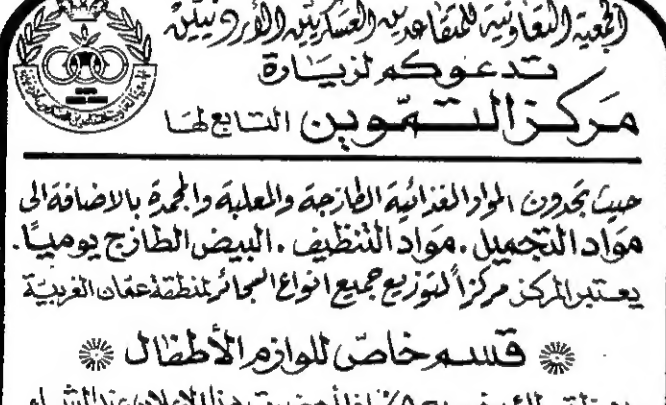 الجمعية التعاونية للمتقاعدين العسكريين الأردنيين
تدعوكم لزيارة
مركز التموين التابع لها
حيث تجدون المواد الغذائية الطازجة والمعلبة والمجمدة بالاضافة الى
مواد التجميل . مواد التنظيف . البيض الطازج يوميًا .
يعتبر المركز مركزاً لتوزيع جميع انواع السجائر لمنطقة عمان الغربية
قسم خاص للوازم الأطفال